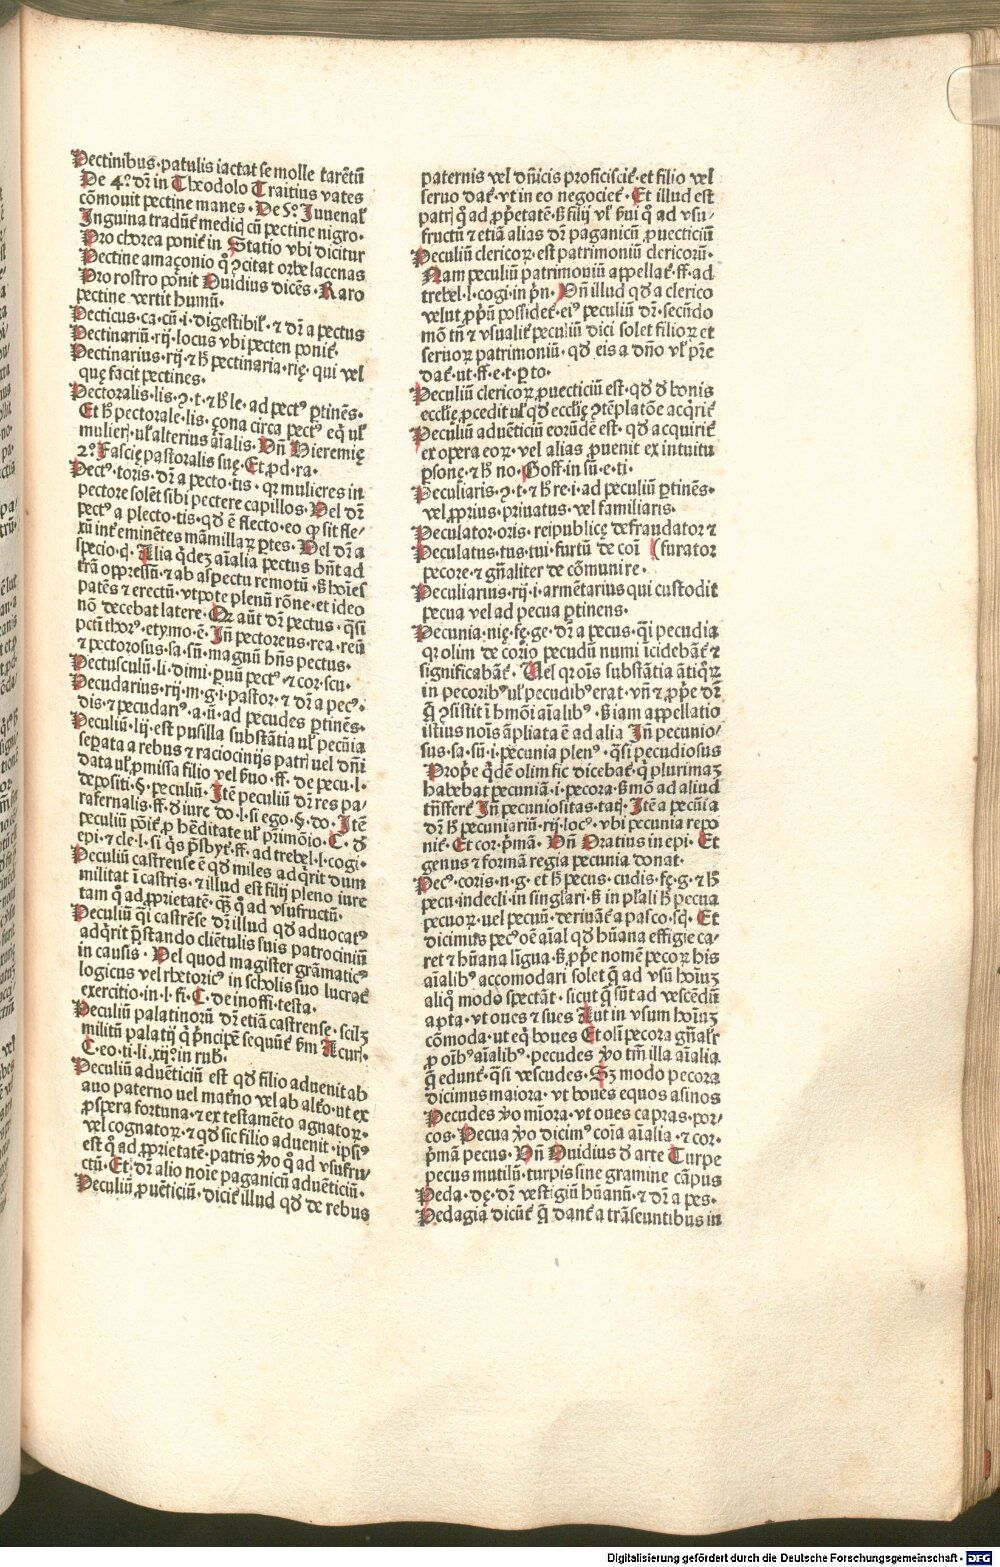 Pectinibus·patulis iactat se molle tarētū
De 4º dr̄ in Theodolo Traitius vates
cōmouit pectine manes· De 5º Iuuenal̄
Inguina traduñt mediq̨ cū pectine nigro·
Pro chorea poniť in Statio vbi dicitur
Pectine amaçonio q̊ ꝯcitat orbe lacenas
Pro rostro pōnit Ouidius dicēs· Raro
pectine vertit humū·
Pecticus·ca·cū·i·digestibil̄·⁊ dr̄ a pectus
Pectinariū·rij·locus vbi pecten poniť·
Pectinarius·rij·⁊ h̄ pectinaria·rię· qui vel
quę facit pectines·
Pectoralis·lis·ꝯ·t·⁊ h̄ le·ad pectꝰ ꝑtinēs·
Et h̄ pectorale·lis·çona circa pectꝰ eq̨ ul̄
mulierꝭ·ul̄ alterius aīalis· Vn̄ Hieremię
2º Fascię pastoralis suę·Et ꝓd·ra·
Pectꝰ·toris·dr̄ a pecto·tis·qꝛ mulieres in
pectore solēt sibi pectere capillos·Vel dr̄
pectꝰ a plecto·tis·qd̄ ē flecto·eo ꝙ sit fle⸗
xū inť eminētes māmillaꝝ ꝑtes· Vel dr̄ a
specio·q· Alia q̇dez aīalia pectus hn̄t ad
trā oppressū·⁊ ab aspectu remotū·s̄ hoīes
patēs ⁊ erectū·vtpote plenū rōne·et ideo
nō decebat latere·Qꝛ aūt dr̄ pectus·q̇si
pcti thorꝰ·etymo·ē·In̄ pectoreus·rea·reū
⁊ pectorosus·sa·sū·magnū hn̄s pectus·
Pectusculū·li·dimi·ꝑuū pectꝰ·⁊ cor·scu·
Pecudarius·rij·m·g·i·pastor·⁊ dr̄ a pecꝰ·
dis·⁊ pecudarꝰ·a·ū·ad pecudes ꝑtinēs·
Peculiū·lij·est pusilla substātia ul̄ pecūia
seꝑata a rebus ⁊ raciocinijs patrꝭ uel dn̄i
data ul̄ ꝓmissa filio vel ẜuo·ff·de pecu·l·
depositi·§·peculiū· Itē peculiū dr̄ res pa⸗
rafernalis·ff·đ iure do·l·si ego·§·do·Itē
peculiū poīť ꝓ hēditate ul̄ primōio·C·đ
epi·⁊ cle·l·si q̇s p̄sbyť·ff·ad trebel·l·cogi·
Peculiū castrense ē qd̄ miles adq̇rit dum
militat ī castris·⁊ illud est filij pleno iure
tam q̊ ad ꝓprietatē·q̄ꝫ q̊ ad vsufructū·
Peculiū q̇i castrēse dr̄ illud qd̄ aduocatꝰ
adq̇rit p̄stando cliētulis suis patrociniū
in causis· Vel quod magister grāmaticꝰ
logicus vel rhetoricꝰ in scholis suo lucrať
exercitio·in·l·fi·C·de inoffi·testa·
Peculiū palatinorū dr̄ etiā castrense·scilꝫ
militū palatij q̇ p̄ncipē sequūť ẜm Acurꝭ·
C·eo·ti·li·xijº·in rub·
Peculiū aduēticiū est qd̄ filio aduenit ab
auo paterno uel mať̄no vel ab alťo·ut ex
ꝓspera fortuna·⁊ ex testamēto agnatoꝝ·
vel cognatoꝝ·⁊ qd̄ sic filio aduenit·ipsiꝰ
est q̊ ad ꝓprietatē·patris ỽo q̊ ad vsufru⸗
ctū·Et dr̄ alio noīe paganicū aduēticiū·
Peculiū ꝓuēticiū·diciť illud qd̄ de rebus
paternis vel dn̄icis proficisciť·et filio vel
seruo dať·vt in eo negocieť· Et illud est
patrꝭ q̊ ad ꝓp̄etatē·s̄ filij vl̄ ẜui q̊ ad vsu⸗
fructū ⁊ etiā alias dr̄ paganicū ꝓuecticiū
Peculiū clericoꝝ·est patrimoniū clericorū·
Nam peculiū patrimoniū appellať·ff·ad
trebel·l·cogi·in pn̄· Vn̄ illud qd̄ a clerico
velut ꝓpū possideť·eiꝰ peculiū dr̄·secūdo
mō tn̄ ⁊ vsualiť peculiū dici solet filioꝝ et
seruoꝝ patrimoniū·qd̄ eis a dn̄o vl̄ pr̄e
dať·ut·ff·e·t·ꝑ to·
Peculiū clericoꝝ ꝓuecticiū est·qd̄ đ bonis
eccl̄ię ꝓcedit ul̄ qd̄ eccl̄ię ꝯtēplatōe acq̇riť
Peculiū aduēticiū eorūdē est·qd̄ acquiriť
ex opera eoꝝ·vel alias ꝓuenit ex intuitu
ꝑsonę·⁊ h̄ no·Goff·in sū·e·ti·
Peculiaris·ꝯ·t·⁊ h̄ re·i·ad peculiū ꝑtinēs·
vel ꝓprius·priuatus·vel familiaris·
Peculator·oris·reipublicę defraudator ⁊
Peculatus·tus·tui·furtū de coī (furator
pecore·⁊ gn̄aliter de cōmuni re·
Peculiarius·rij·i·armētarius qui custodit
pecua vel ad pecua ꝑtinens·
Pecunia·nię·fę·ge·dr̄ a pecus·q̄i pecudia
qꝛ olim de corio pecudū numi īcidebāť ⁊
significabāť· Vel qꝛ oīs substātia ātiq̊ꝝ
in pecoribꝰ ul̄ pecudibꝰ erat·vn̄ ⁊ ꝓp̄e dr̄
q̄ ꝯsistit ī hmōi aīalibꝰ·s̄ iam appellatio
istius noīs āpliata ē ad alia In̄ pecunio⸗
sus·sa·sū·i·pecunia plenꝰ·q̄si pecudiosus
Prop̄e q̇dē olim sic dicebať·q̇ plurimaꝫ
habebat pecuniā·i·pecora·s̄ mō ad aliud
tn̄sferť In̄ pecuniositas·tatꝭ·Itē a pecūia
dr̄ h̄ pecuniariū·rij·locꝰ·vbi pecunia repo
niť·Et cor·pᵐā· Vn̄ Oratius in epi· Et
genus ⁊ formā regia pecunia donat·
Pecꝰ·coris·n·g·et h̄ pecus·cudis·fę·g·⁊ h̄
pecu·indecli·in singlari·s̄ in pl̄ali h̄ pecua
pecuoꝝ·uel pecuū·deriuāť a pasco·sq̇· Et
dicimus pecꝰ oē aīal qd̄ hūana effigie ca⸗
ret ⁊ hūana līgua·s̄ ꝓp̄e nomē pecoꝝ his
aīalibꝰ accomodari solet q̄ ad vsū hoīuꝫ
aliq̊ modo spectāt·sicut q̄ sūt ad vescēdū
apta·vt oues ⁊ sues Aut in vsum hoīuꝫ
cōmoda·ut eq̇ boues Et olī pecora gn̄alr̄
ꝓ oībꝰ aīalibꝰ·pecudes ỽo tm̄ illa aīalia
q̄ edunť·q̇si vescudes·Sꝫ modo pecora
dicimus maiora·vt boues equos asinos
Pecudes ỽo mīora·vt oues capras·por⸗
cos· Pecua ỽo dicimꝰ coīa aīalia·⁊ cor·
pᵐā pecus· Vn̄ Ouidius đ arte Turpe
pecus mutilū·turpis sine gramine cāpus
Peda·dę·dr̄ vestigiū hūanū·⁊ dr̄ a pes·
Pedagia dicūť q̄ danť a trāseuntibus in
Digitalisierung gefördert durch die Deutsche Forschungsgemeinschaft · DFG